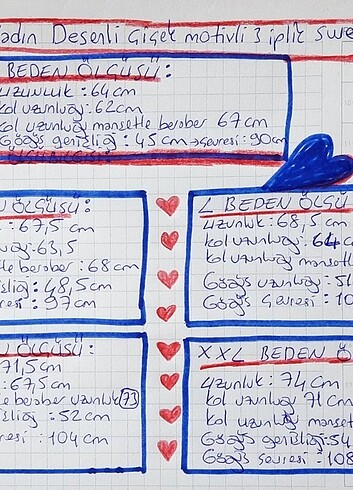 adın Desenli çiçek motivli 3 iplik swe
BEDEN ÖLÇÜSÜ:
uzunluk : 64 cm
kol uzunluğu : 62 cm
kol uzunluğu mansetle beraber 67 cm
Göğüs genişliği : 45 cm → çevresi : 90cm
ÖLÇÜSÜ:
: 67,5 cm
63,5
le beraber : 68 cm
ği : 48,5 cm
resi : 97 cm
L BEDEN ÖLÇÜ
uzunluk : 68,5 cm
kol uzunluğu 64 c
kol uzunluğu mansetl
Göğüs uzunluğu : 51
Göğüs çevresi : 10
ÖLÇÜSÜ:
71,5 cm
: 67,5 cm
le beraber uzunluk 73
işliği : 52 cm
resi : 104 cm
XXL BEDEN Ö
uzunluk : 74 cm
kol uzunluğu 71 cm
kol uzunluğu manset
Göğüs genişliği : 54
Göğüs çevresi : 108